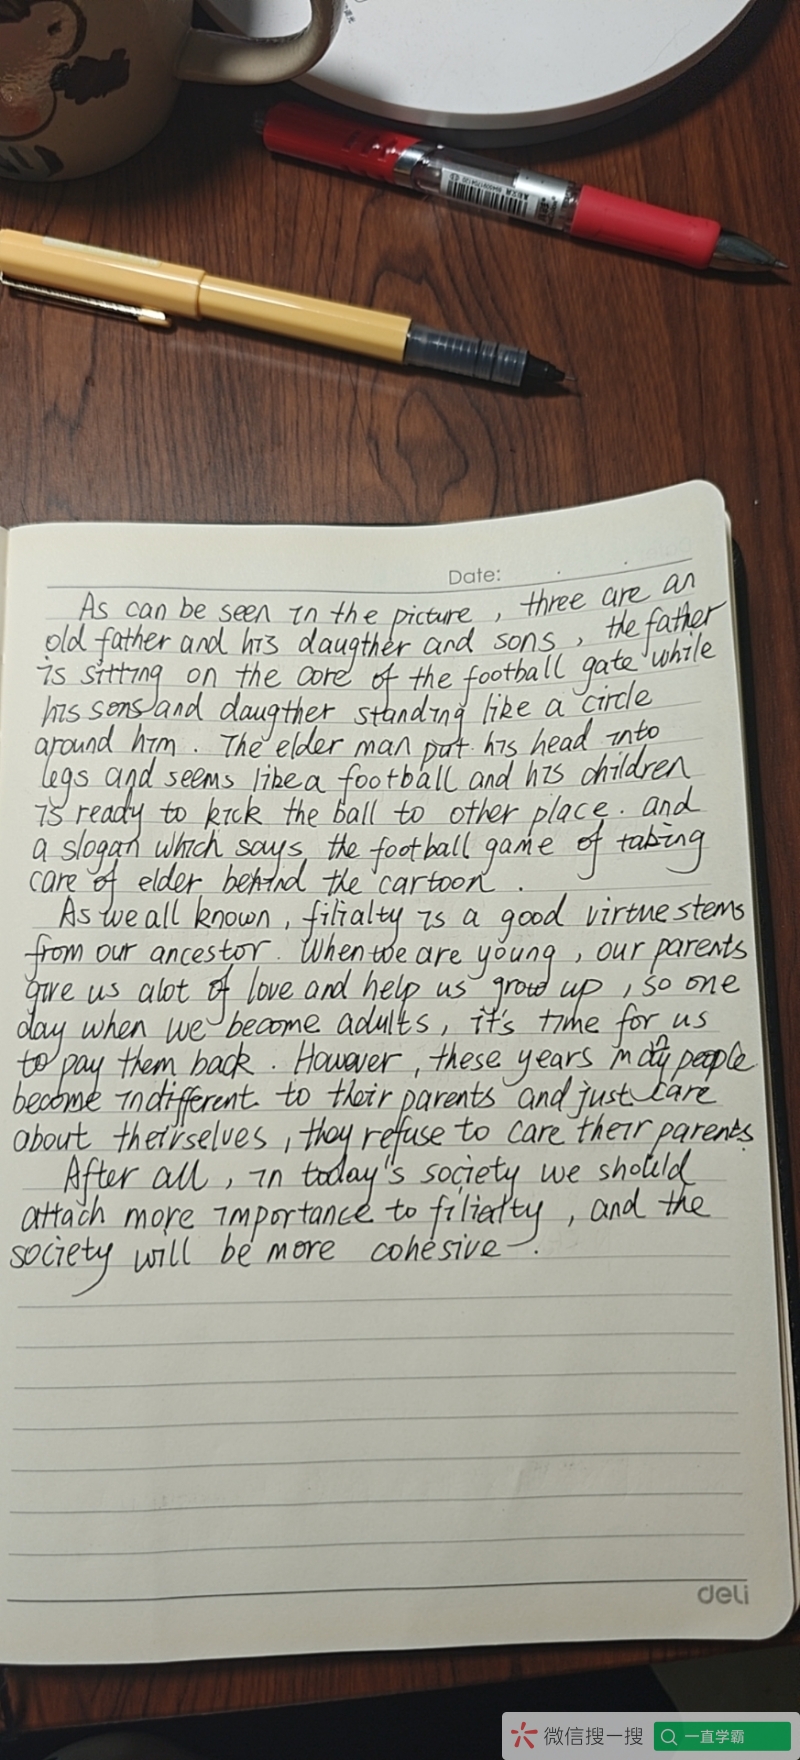 Date:
As can be seen in the picture, three are an
old father and his daugther and sons, the father
is sitting on the core of the football gate while
his sons and daugther standing like a circle
around him. The elder man put his head into
legs and seems like a football and his children
is ready to kick the ball to other place. and
a slogan which says, the football game of taking
care of elder behind the cartoon.
As we all known, filialty is a good virtue stems
from our ancestor. When we are young, our parents
give us alot of love and help us grow up, so one
day when we become adults, it's time for us
to pay them back. However, these years many people
become indifferent to their parents and just care
about theirselves, they refuse to care their parents.
After all, in today's society we should
attach more importance to filialty, and the
society will be more cohesive.
deli
微信搜一搜 一直学霸